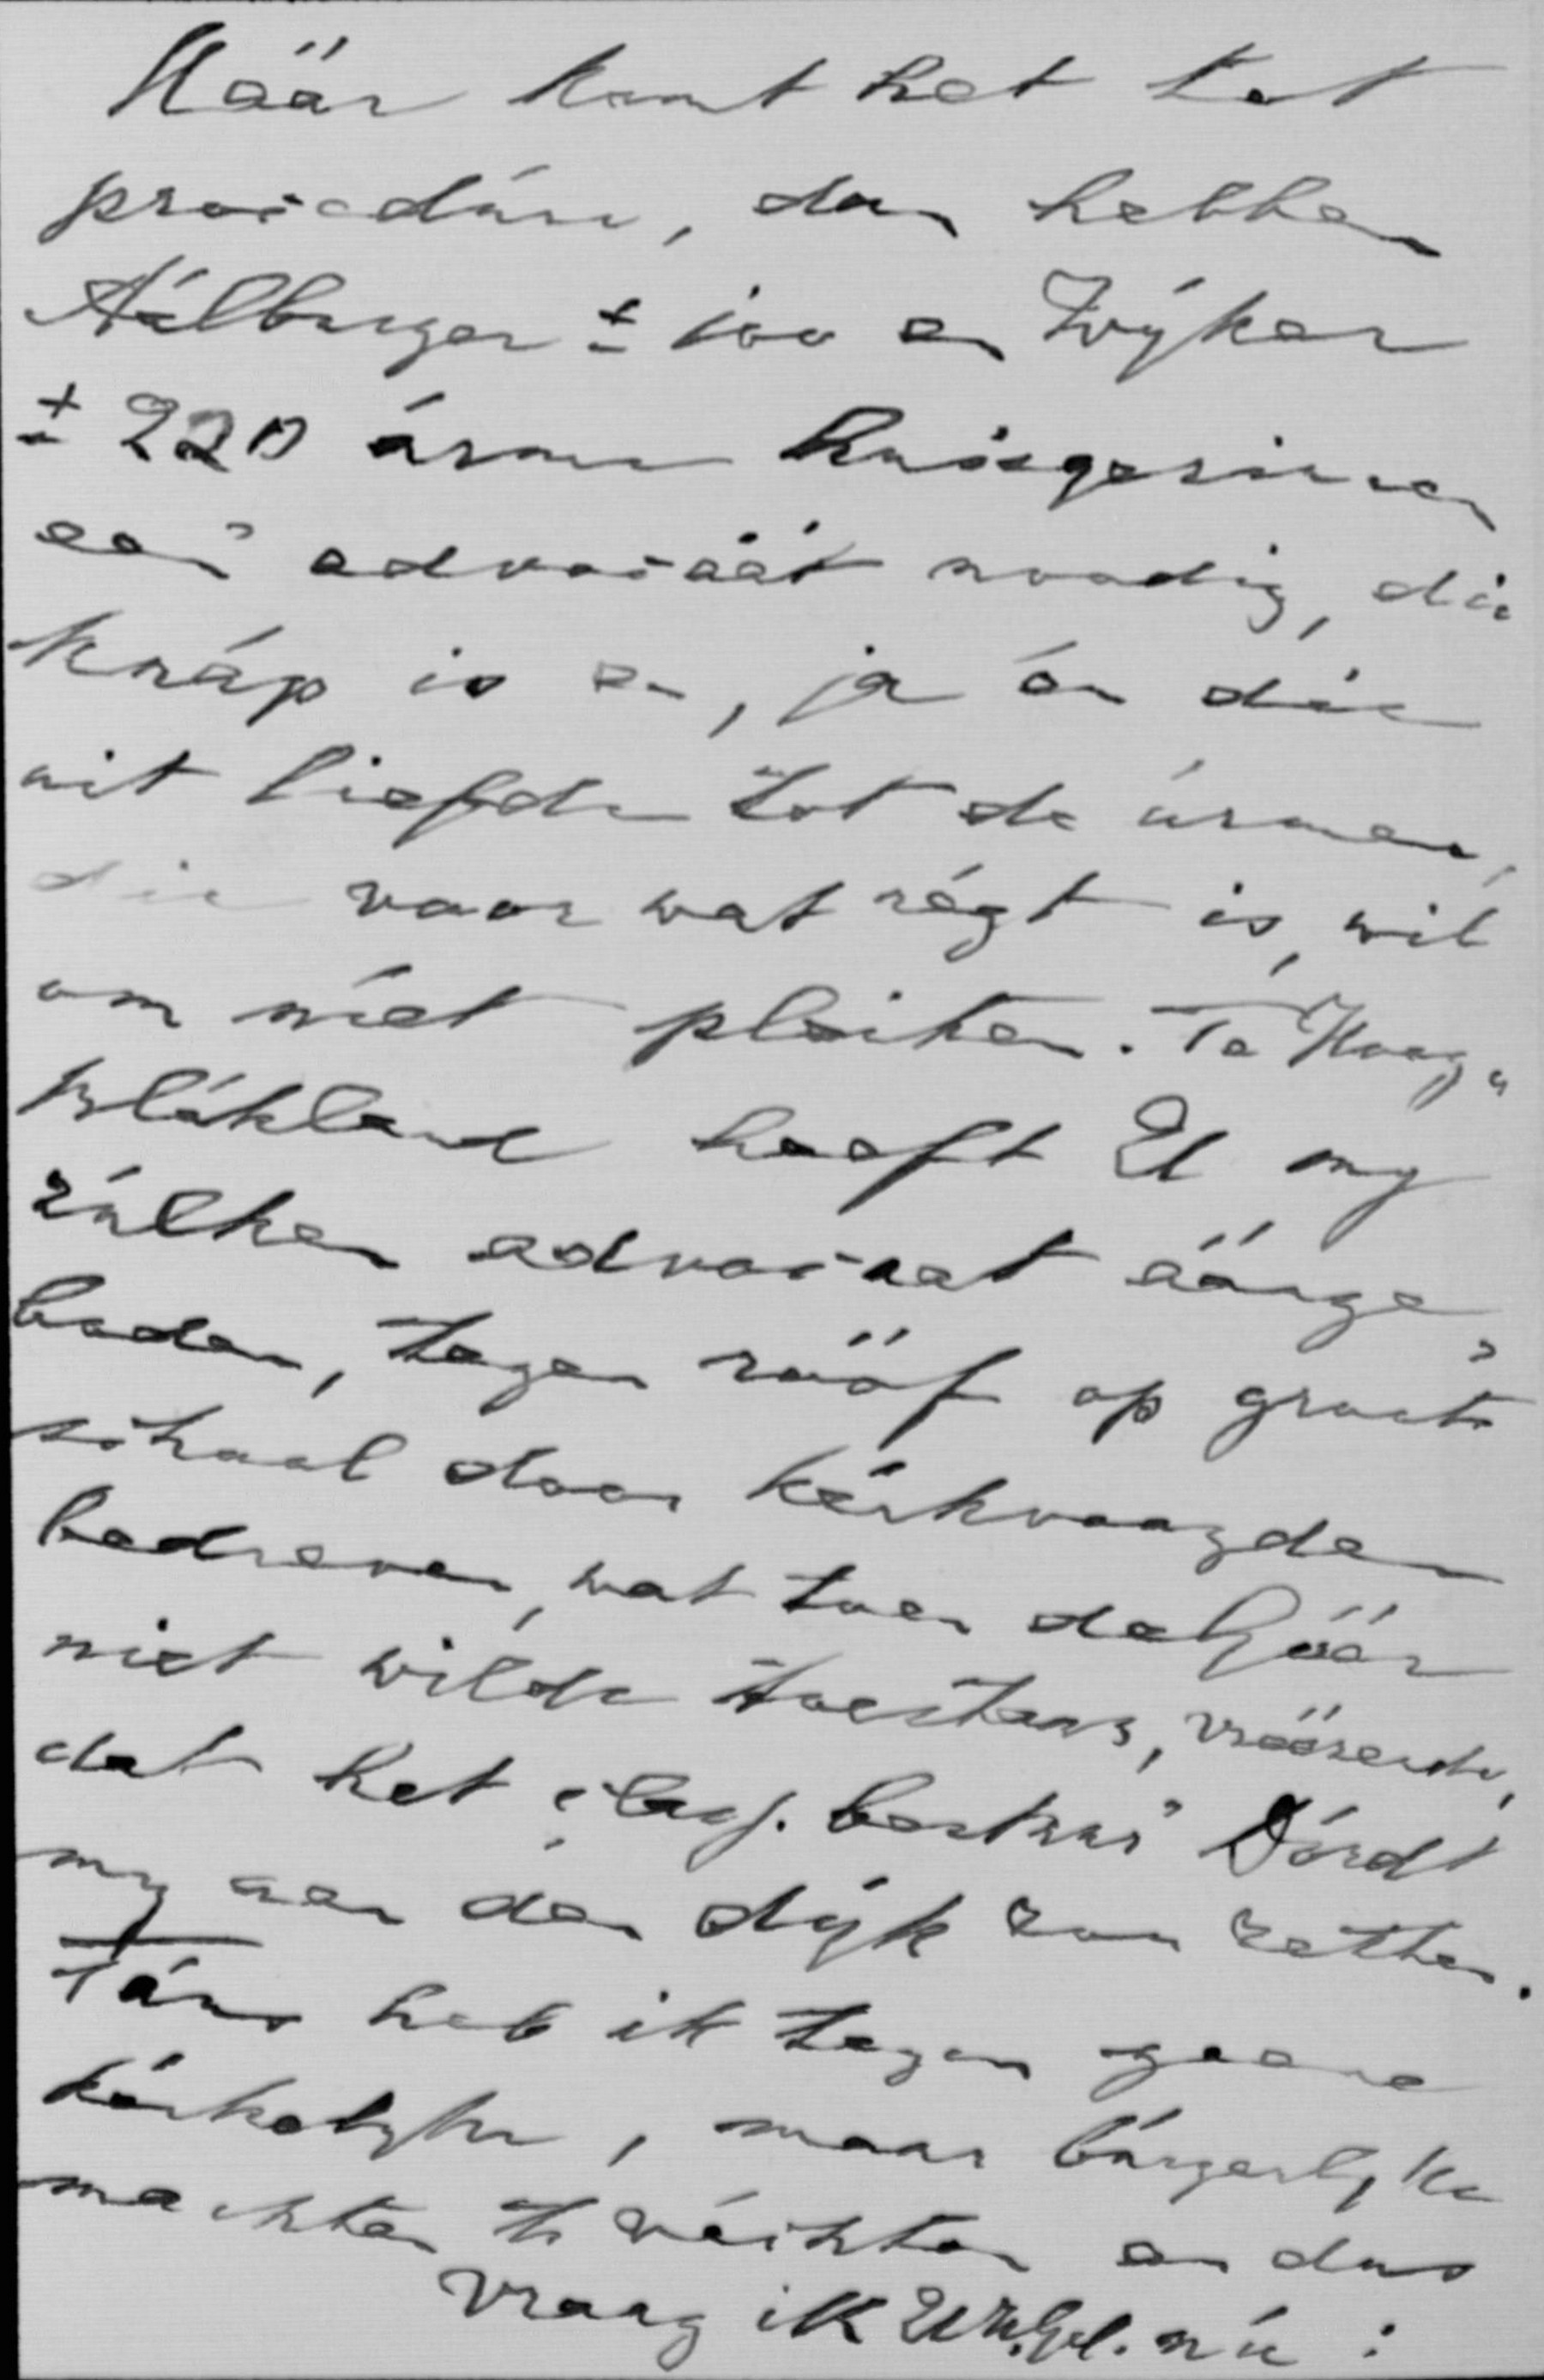 Määr komt het tot
procedure, dan hebben
Aálburger ± 100 en Wijker
± 220 árme huisgezinnen
een advocäät noodig, die
knáp is en, ja én díe
uit liefde tot de armen,
die voor wat régt is, wil
om níet pleiten. Te Hoog-
blókland heeft U my
zúlken advocaat äänge-
boden, tegen rööf op groote
schaal door kérkvoogden
bedreven, wat toen de Gäär
niet wílde toestaan, vrëëzende,
dat het class. bestuur Dórdt
my aan den dyk zou zetten.
Táns heb ik tegen geene
kérkelyke, maar búrgerlyke
machten te véchten en dus
vraag ik UW.Gel. nú :